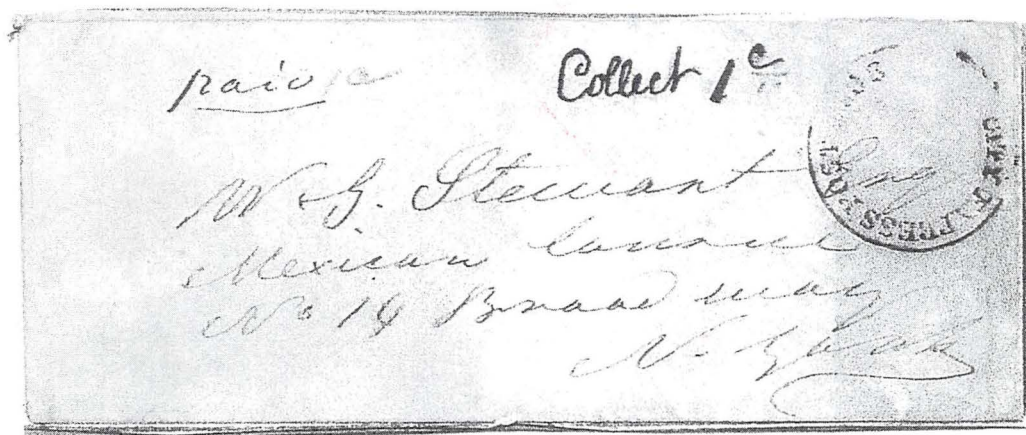 paid
Collect 1c
W. G. Stewart Esq
Mexican Consul
No 14 Broad way
N. York
EXPRESS